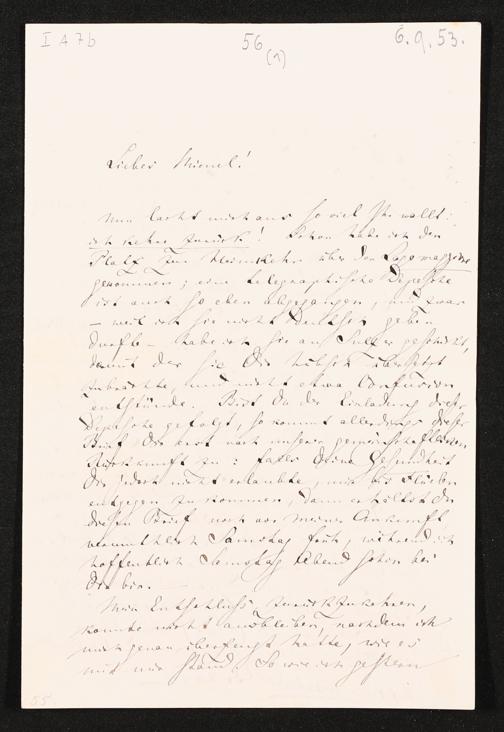 I A 7b
56
(1)
6.9.53.
Liebes Mienel!
Nun lacht mich aus so viel Ihr wollt:
ich kehre zurück! Schon habe ich den
Platz zur Heimkehr über den Lago maggiore
genommen; eine telegraphische Depesche
ist auch so eben abgegangen, und zwar
– weil ich sie nicht deutsch geben
durfte – habe ich sie an Sulzer geschickt,
damit der sie Dir hübsch übersetzt
zubrächte, und nicht etwa Confusion
entstünde. Bist Du der Einladung dieser
Depesche gefolgt, so kommt allerdings dieser
Brief Dir erst nach unserer gemeinschaftlichen
Rückkunft zu: falls Deine Gesundheit
Dir jedoch nicht erlaubte, mir bis Flüelen
entgegen zu kommen, dann erhältst Du
diesen Brief noch vor meiner Ankunft
vermuthlich Samstag früh, während ich
hoffentlich Samstag Abend schon bei
Dir bin. –
Mein Entschluss zurückzukehren,
konnte nicht ausbleiben, nachdem ich
mich genau überzeugt hatte, wie es
mit mir stand. So wie ich gestern
55.